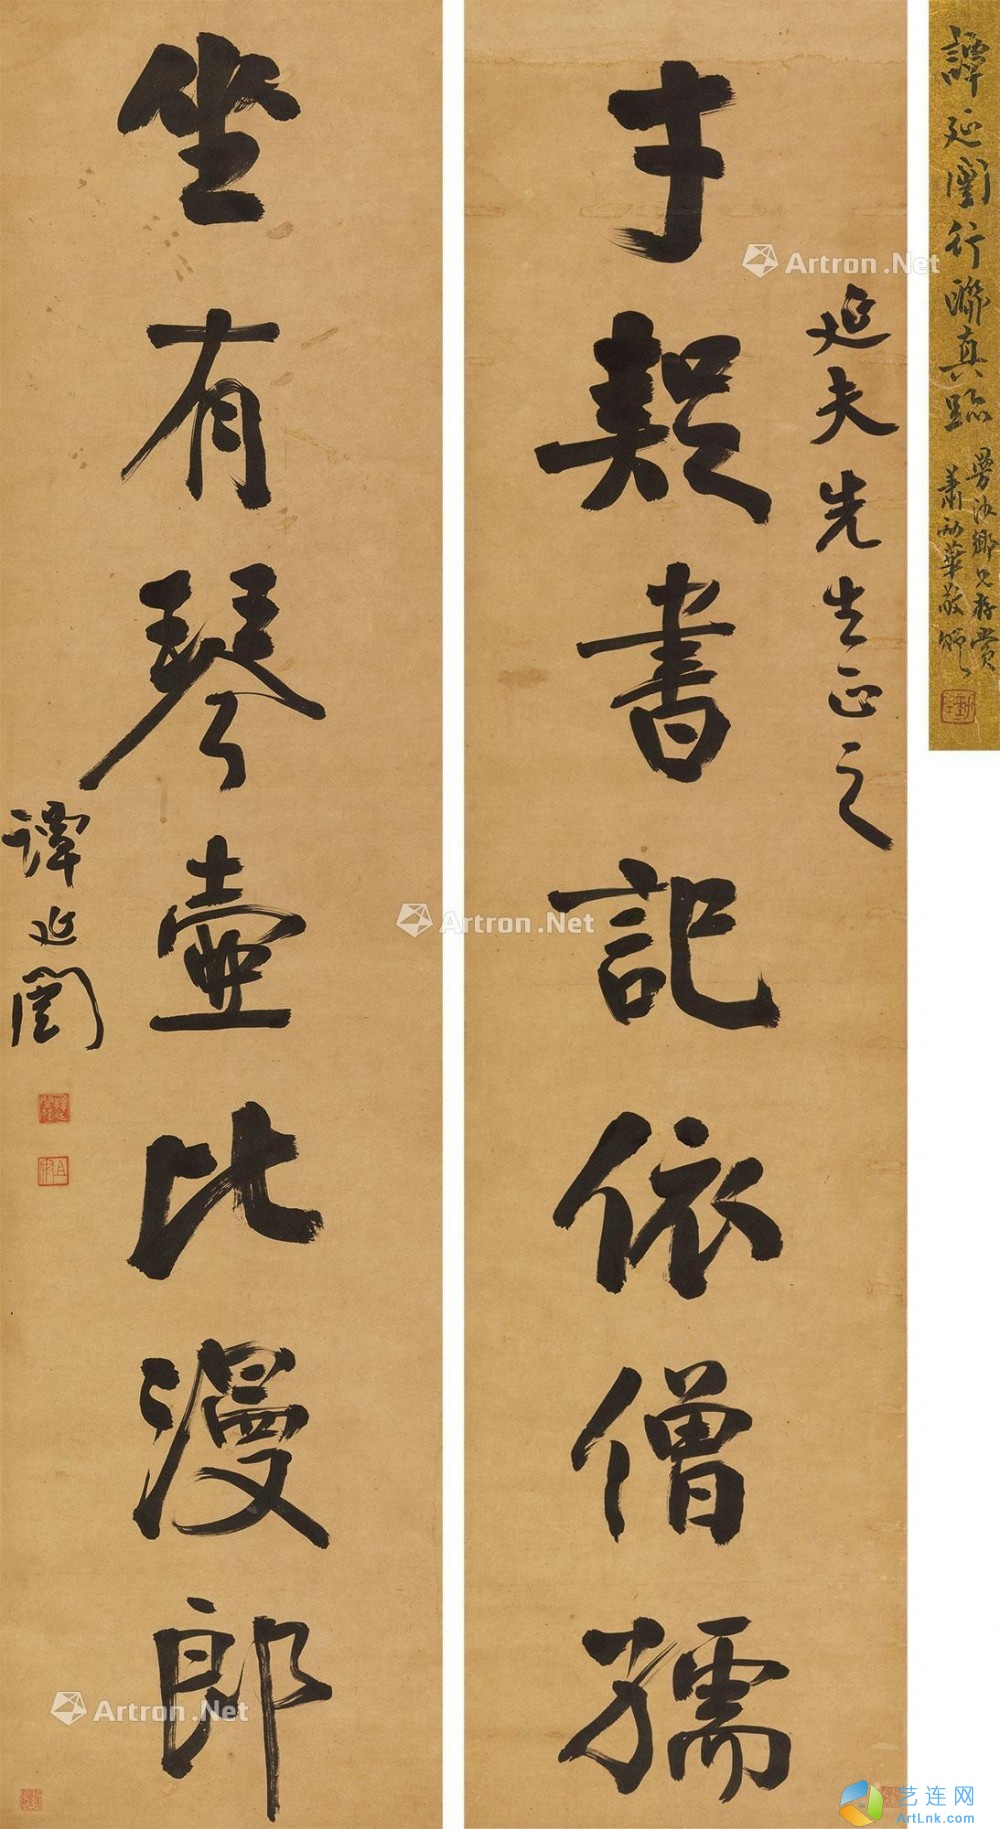 譚延闓行聯真跡
鄉兄存賞
蕭華敬題
延夫先生正之
才疑書記依僧孺
坐有琴壺比漫郎
譚延闓
Artron.Net
Artron.Net
Artron.Net
艺连网
ArtLnk.com